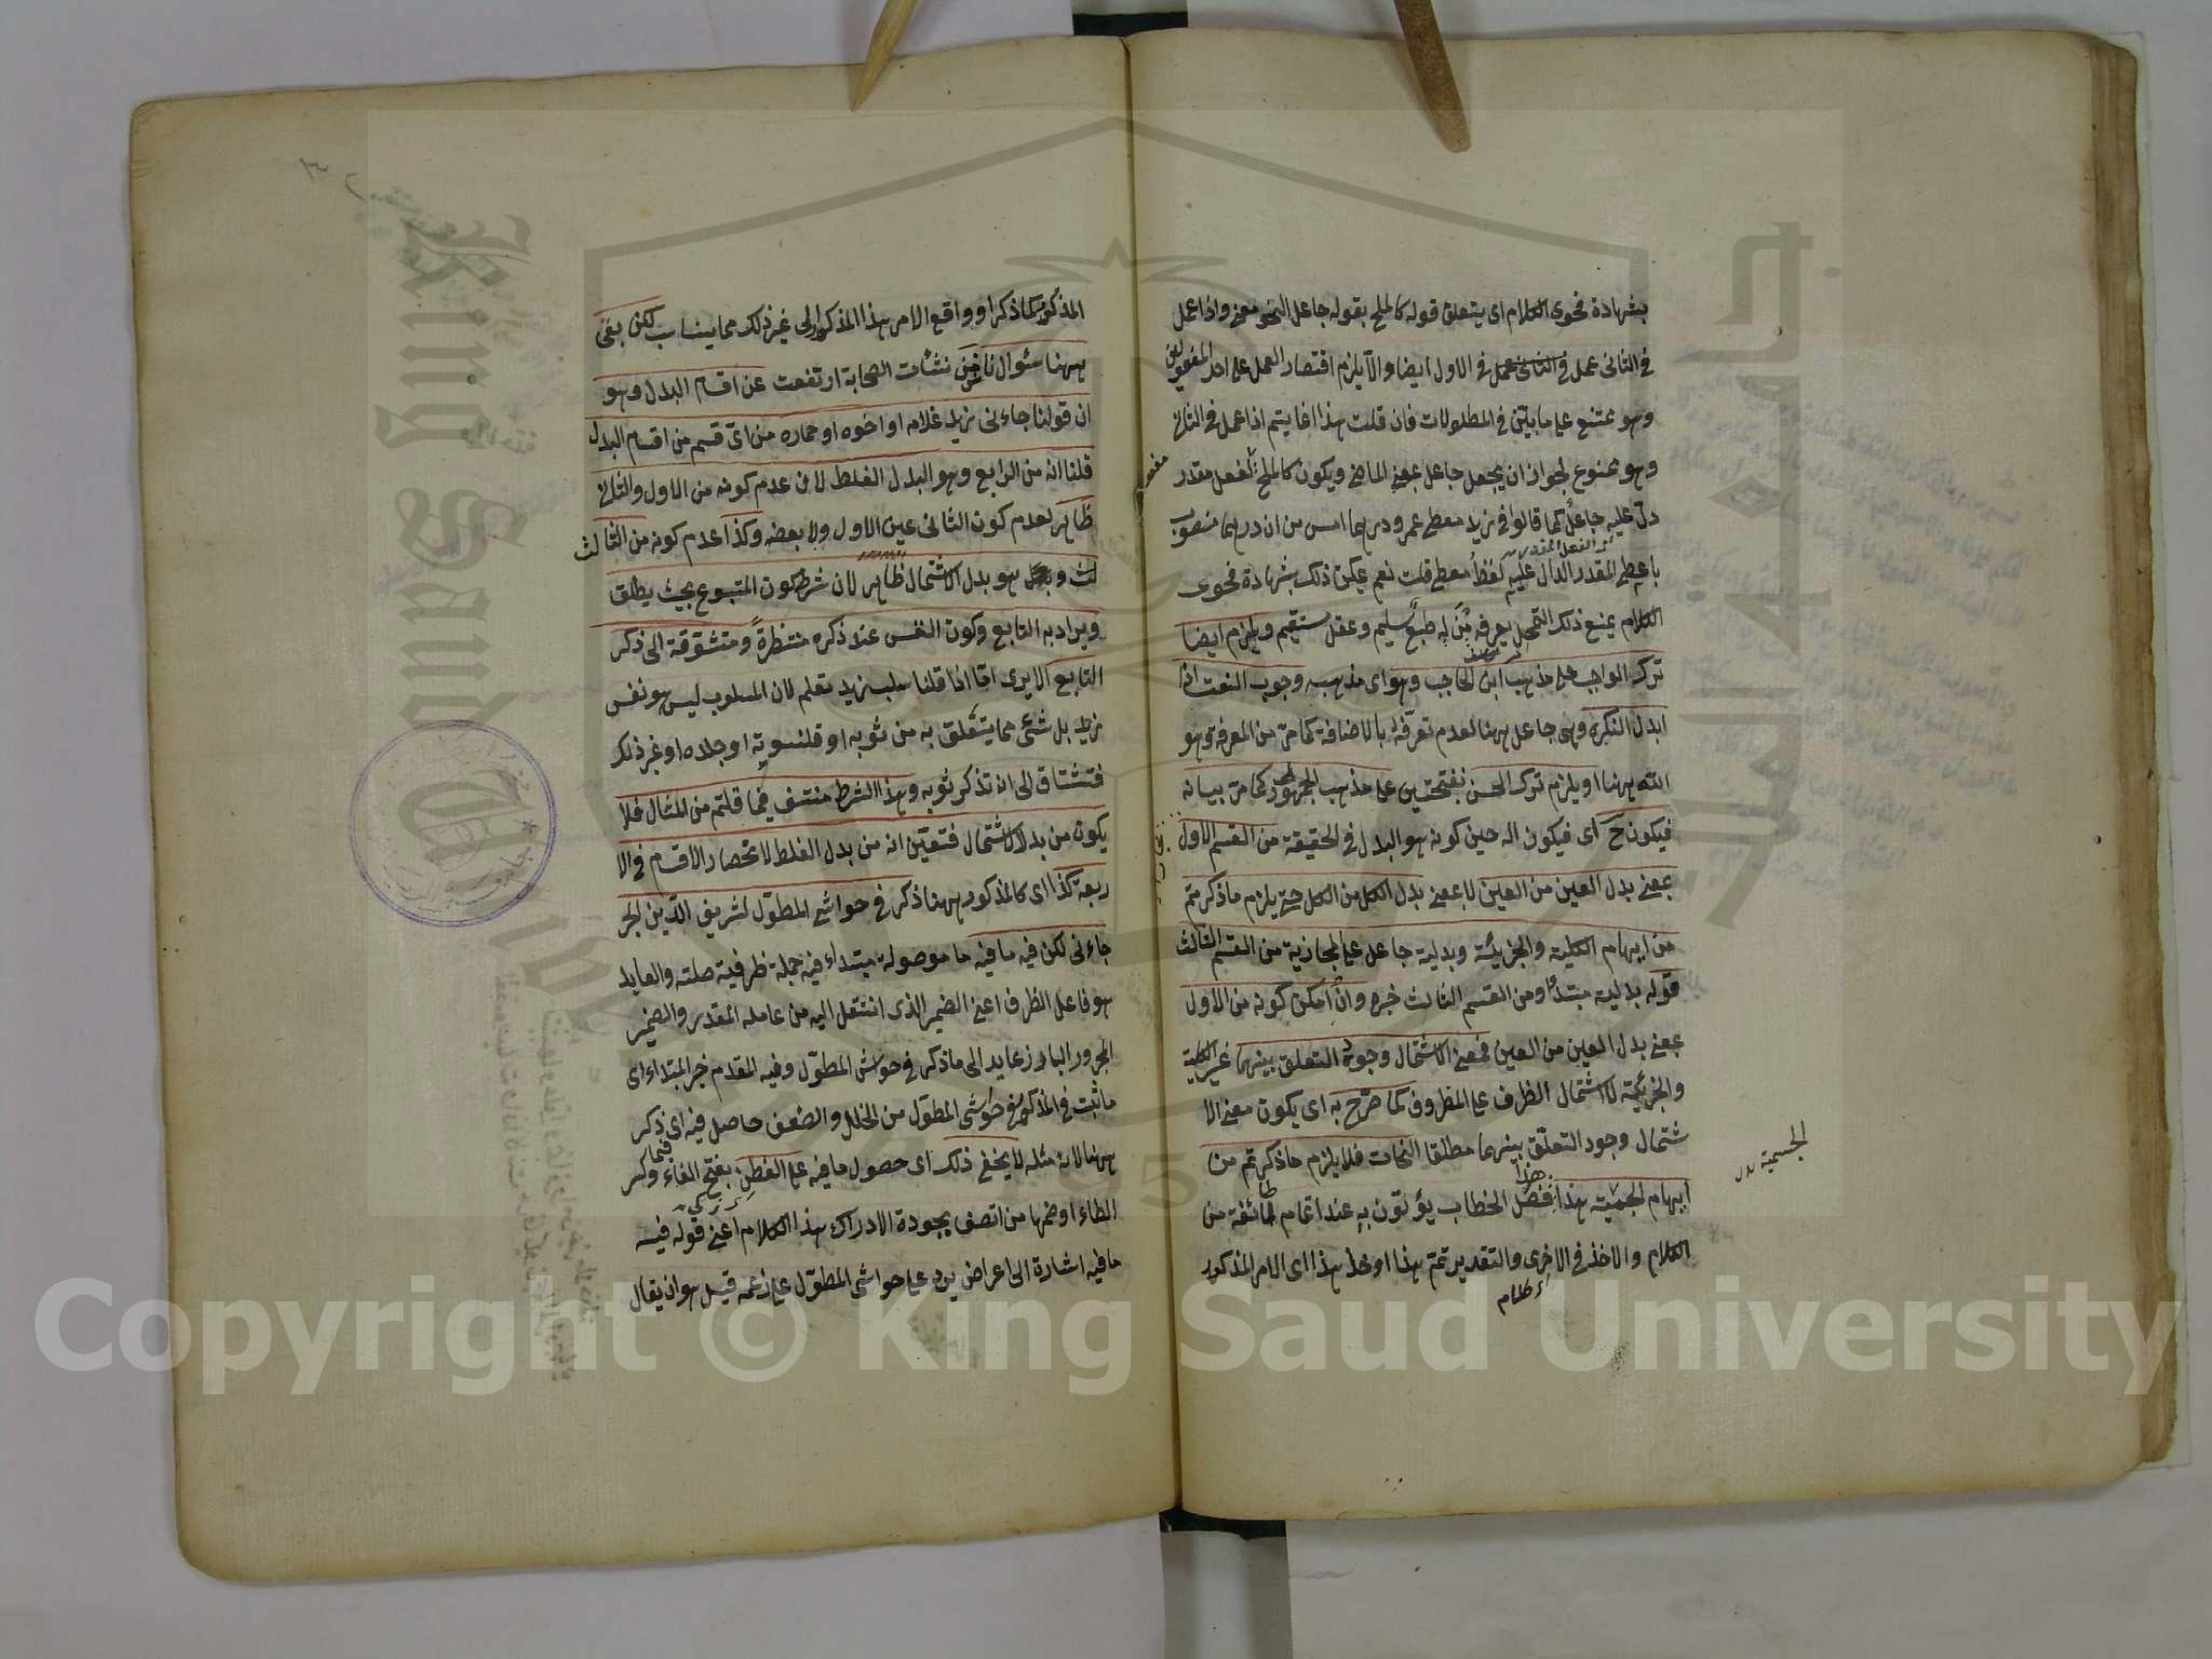 بشهادة فحوى الكلام اى يتعلق قوله كالملح بقوله جاعل النحو معنى واذا عمل
فى الثانى عمل فى الثانى عمل فى الاول ايضا والا يلزم اقتصار العمل على احد المفعولين
وهو ممتنع على ما بيّن فى المطولات فان قلت هذا انما يتم اذا عمل فى الثانى
وهو ممنوع لجواز ان يجعل جاعل بمعنى الماضى ويكون كالملح لفعل مقدر
دلّ عليه جاعل كما قالوا فى زيد معطى عمرو درهما امس من ان درهما منصوب
باعطى المقدر الدال عليه لفظ معطى قلت نعم يمكن ذلك بشهادة فحوى
الكلام يمنع ذلك التمحل يعرفه من له طبع سليم وعقل مستقيم ويلزم ايضا
ترك الواجب على مذهب ابن الحاجب وهو اى مذهبه وجوب النعت اذا
ابدل النكرة وهى جاعل ههنا لعدم تعرّفه بالاضافة كما مرّ من المعرفة وهو
الله ههنا او يلزم ترك الحسن بفتحتين على مذهب الجمهور كما مرّ بيانه
فيكون ح اى فيكون اله حين كونه هو البدل فى الحقيقة من القسم الاول
بمعنى بدل العين من العين لا بمعنى بدل الكل من الكل حتى يلزم ما ذكرتم
من ايهام الكلية والجزئية وبدلية جاعل على المجازية من القسم الثالث
قوله بدلية مبتدأ ومن القسم الثالث خبره وان امكن كونه من الاول
بمعنى بدل العين من العين فمعنى الاشتمال وجود التعلق بينهما غير الكلية
والجزئية لا اشتمال الظرف على المظروف كما صرّح به اى يكون معنى الا
شتمال وجود التعلّق بينهما مطلقا النحات فلا يلزم ما ذكرتم من
ايهام الجمية هذا فصل الخطاب يؤتون به عند اتمام طائفة من
الكلام والاخذ فى الاخرى والتقدير تمّ هذا او خذ هذا اى الامر المذكور
الجسمية بدل
المذكور كما ذكر او واقع الامر هذا المذكور الى غير ذلك مما يناسب لكن بقى
ههنا سئوال نا نشأت الصحابة ارتفعت عن اقسام البدل وهو
ان قولنا جاءنى زيد غلامه او اخوه او حماره من اىّ قسم من اقسام البدل
قلنا انه من الرابع وهو البدل الغلط لان عدم كونه من الاول والثانى
ظاهر لعدم كون الثانى عين الاول ولا بعضه وكذا عدم كونه من الثالث
لث و هو بدل الاشتمال ظاهر لان شرطه كون المتبوع بحيث يطلق
ويراد به التابع وكون النفس عند ذكره منتظرة ومتشوقة الى ذكر
التابع الا يرى انّا اذا قلنا سلب زيد تعلم لان المسلوب ليس هو نفس
زيد بل شئى مما يتعلق به من ثوبه او قلنسوته او جلده او غير ذلك
فتشتاق الى ان تذكر ثوبه وهذا الشرط منتف فيما قلتم من المثال فلا
يكون من بدل الاشتمال فتعيّن انه من بدل الغلط لانحصار الاقسام فى الا
ربعة كذا اى كالمذكور ههنا ذكر فى حواشى المطوّل لشريف الدّين الجر
جاءنى لكن فيه ما فيه ما موصولة مبتداء فيه جملة ظرفية صلته والعايد
هو فاعل الظرف اعنى الضمير الذى انتقل اليه من عامله المقدر والضمير
المجرور البارز عايد الى ما ذكر فى حواشى المطوّل وفيه المقدم خبر المبتداء اى
ما ثبت فى المذكور فى حواشى المطوّل من الخلل والضعف حاصل فيه اى ذكر
ههنا لانه مثله لا يخفى ذلك اى حصول ما فيه على الفطن بفتح الفاء وكسر
الطاء او ضمها من اتصف بجودة الادراك هذا الكلام اعنى قوله فيه
ما فيه اشارة الى اعراض يرد على حواشى المطوّل على زعمه قيل هو ان يقال
Copyright © King Saud University
King Saud University